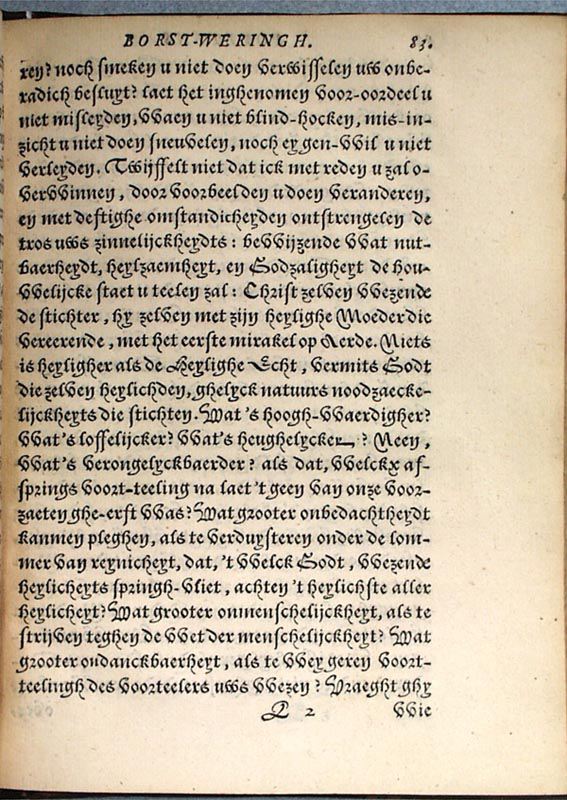 BORST-WERINGH. 83.
ren? noch smeken u niet doen verwisselen uw onbe-
radich besluyt? laet het inghenomen voor-oordeel u
niet misleyden, VVaen u niet blind-hocken, mis-in-
zicht u niet doen sneuvelen, noch eygen-VVil u niet
verleyden. Twijffelt niet dat ick met reden u zal o-
verVVinnen, door voorbeelden u doen veranderen,
en met deftighe omstandicheyden ontstrengelen de
tros uws zinnelijckheydts: beVVijzende VVat nut-
baerheydt, heylzaemheyt, en Godzaligheyt de hou-
VVelijcke staet u teelen zal: Christ zelven VVezende
de stichter, hy zelven met zijn heylighe Moeder die
vereerende, met het eerste mirakel op Aerde. Niets
is heyligher als de Heylighe Echt, vermits Godt
die zelven heylichden, ghelyck natuurs noodzaecke-
lijckheyts die stichten. Wat's hoogh-VVaerdigher?
VVat's loffelijcker? VVat's heughelycker? Neen,
VVat's verongelyckbaerder? als dat, VVelckx af-
springs voort-teeling na laet 't geen van onze voor-
zaeten ghe-erft VVas? Wat grooter onbedachtheydt
kanmen pleghen, als te verduysteren onder de lom-
mer van reynicheyt, dat, 't VVelck Godt, VVezende
heylicheyts springh-vliet, achten 't heylichste aller
heylicheyt? Wat grooter onmenschelijckheyt, als te
strijven teghen de VVet der menschelijckheyt? Wat
grooter ondanckbaerheyt, als te VVeygeren voort-
teelingh des voorteelers uws VVezen? Vraeght ghy
Q 2 VVie